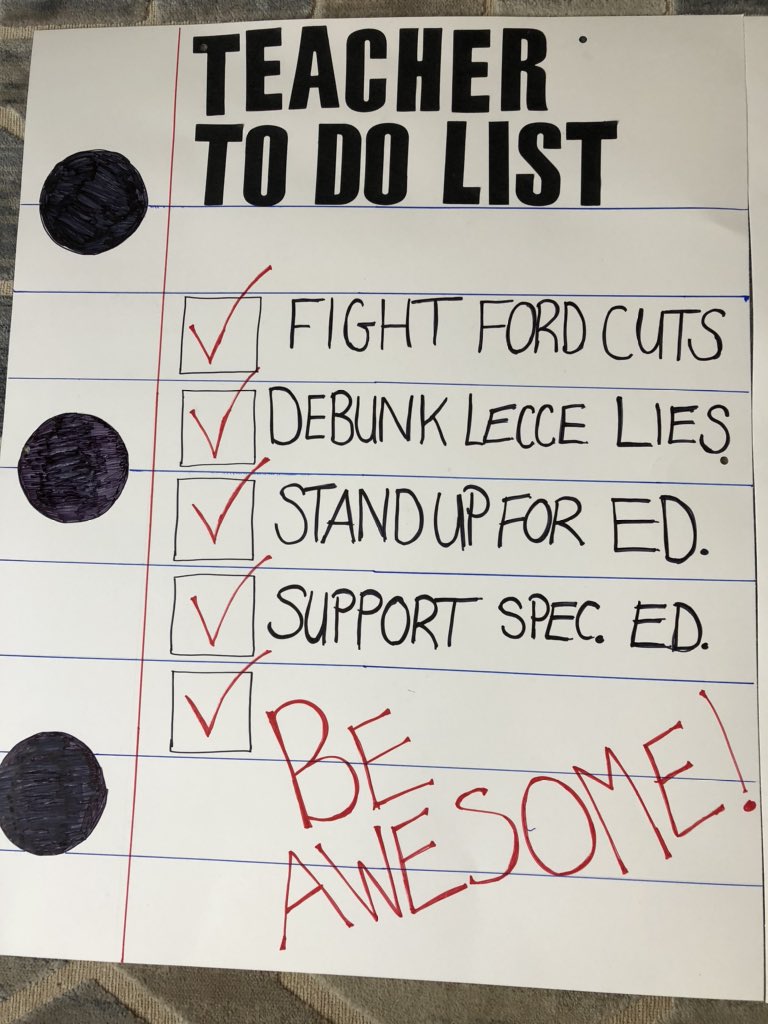 TEACHER
TO DO LIST
FIGHT FORD CUTS
DEBUNK LECCE LIES.
STAND UP FOR ED.
SUPPORT SPEC. ED.
BE
AWESOME!